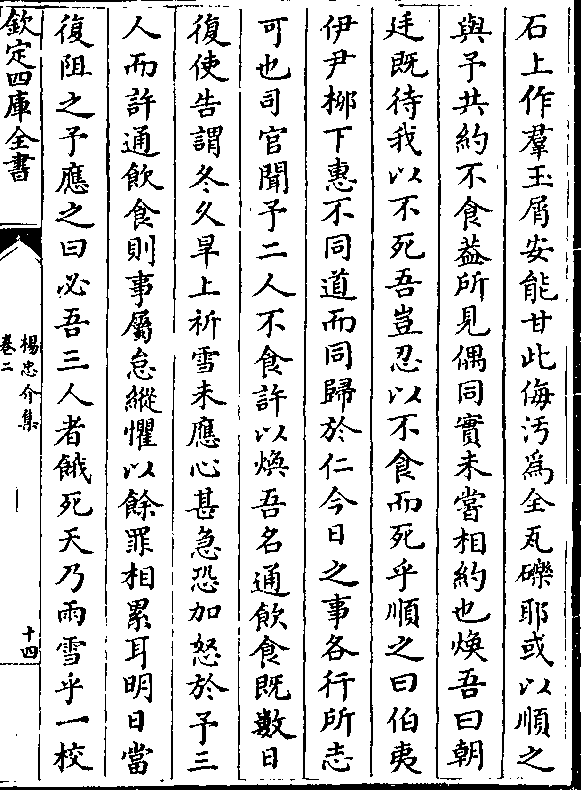 石上作羣玉屑安能甘此侮汚爲全瓦礫耶或以順之
與予共約不食葢所見偶同實未嘗相約也煥吾曰朝
廷既待我以不死吾豈忍以不食而死乎順之曰伯夷
伊尹柳下惠不同道而同歸於仁今日之事各行所志
可也司官聞予二人不食許以煥吾名通飲食既數日
復使告謂冬久旱上祈雪未應心甚急恐加怒於予三
人而許通飲食則事屬怠縱懼以餘罪相累耳明日當
復阻之予應之曰必吾三人者餓死天乃雨雪乎一校
欽定四庫全書
楊忠介集
卷二
十四